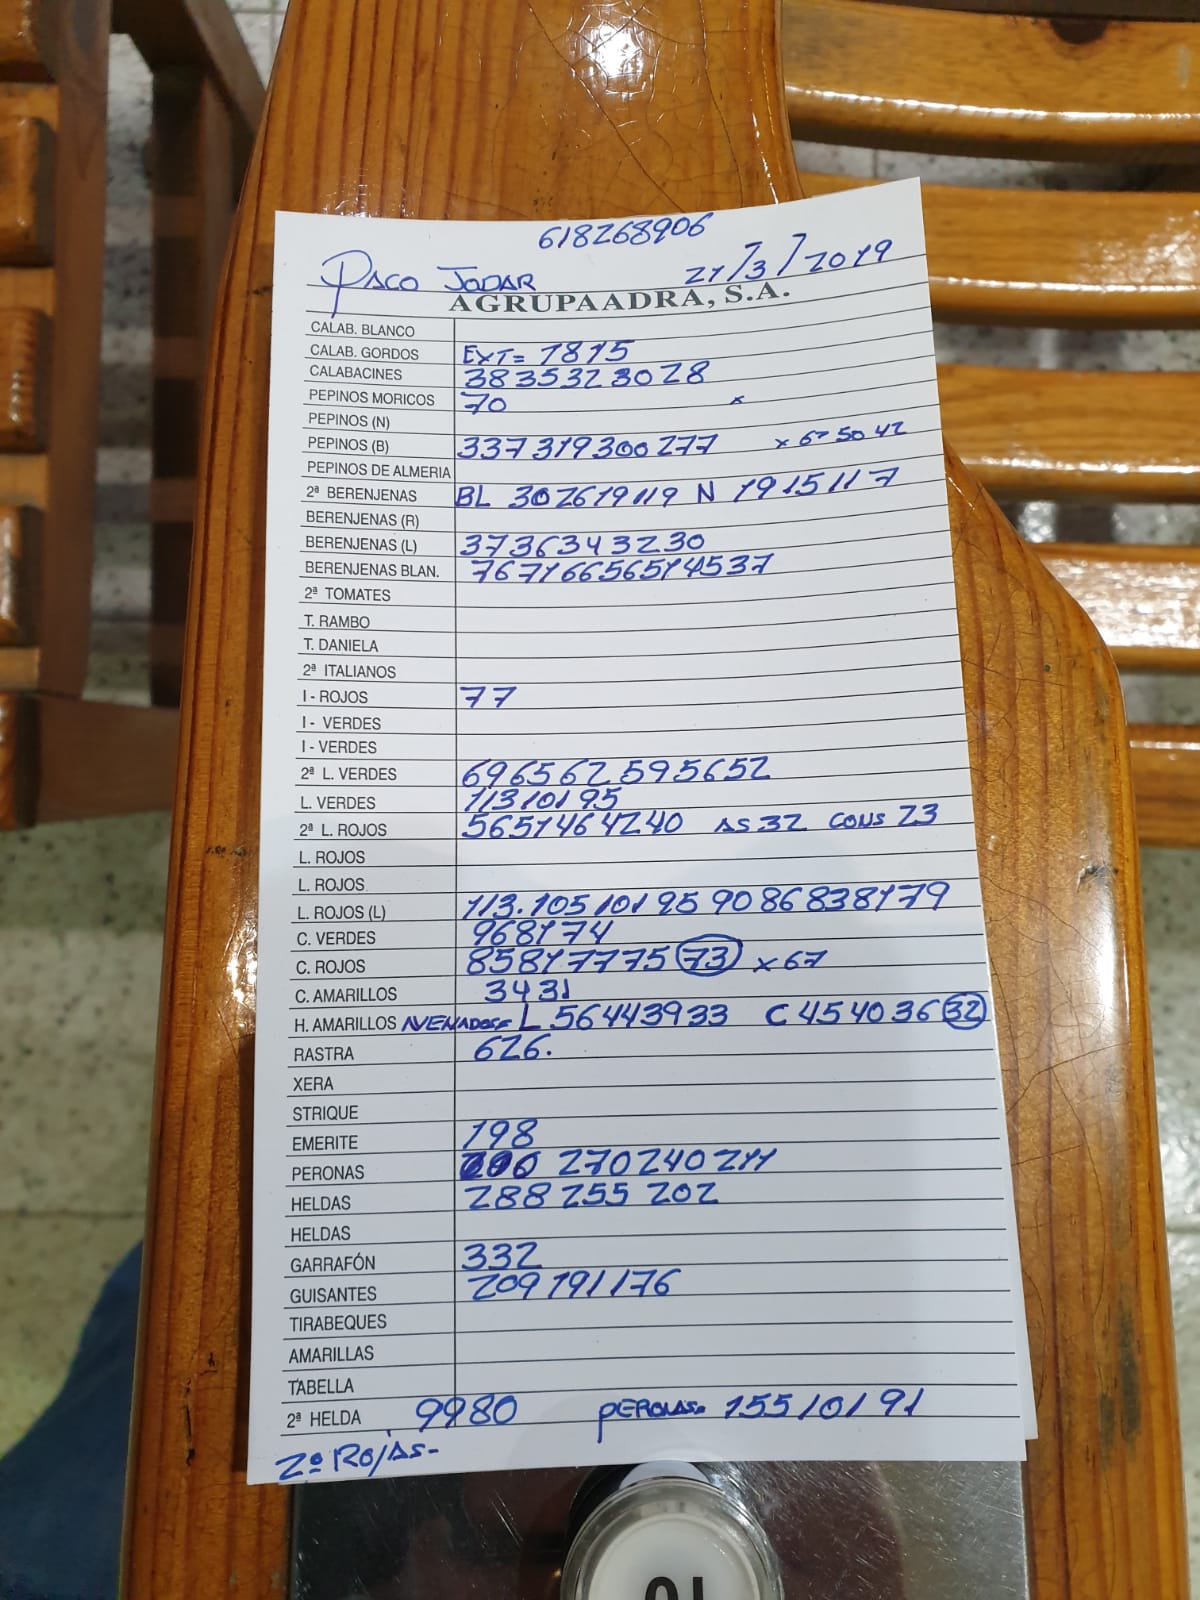 618268906
PACO JODAR 21/3/2019
AGRUPAADRA, S.A.
CALAB. BLANCO
CALAB. GORDOS EXT= 1815
CALABACINES 3835323028
PEPINOS MORICOS 70 x
PEPINOS (N)
PEPINOS (B) 337 319 300 277 x 67 50 42
PEPINOS DE ALMERIA
2ª BERENJENAS BL 302619119 N 1915117
BERENJENAS (R)
BERENJENAS (L) 3736343230
BERENJENAS BLAN. 76716656514537
2ª TOMATES
T. RAMBO
T. DANIELA
2ª ITALIANOS
I - ROJOS 77
I - VERDES
I - VERDES
2ª L. VERDES 696562595652
L. VERDES 11310195
2ª L. ROJOS 5651464240 AS 32 CONS 23
L. ROJOS
L. ROJOS
L. ROJOS (L) 113.105 101 95 90 86 83 81 79
C. VERDES 968174
C. ROJOS 85817775 73 x 67
C. AMARILLOS 3431
H. AMARILLOS AVENADOS= L 56443933 C 45 40 36 32
RASTRA 626.
XERA
STRIQUE
EMERITE 198
PERONAS 270 240 211
HELDAS 288 255 202
HELDAS
GARRAFÓN 332
GUISANTES 209 191 176
TIRABEQUES
AMARILLAS
TABELLA
2ª HELDA 9980 PEROLAS= 155 101 91
2º ROJAS-